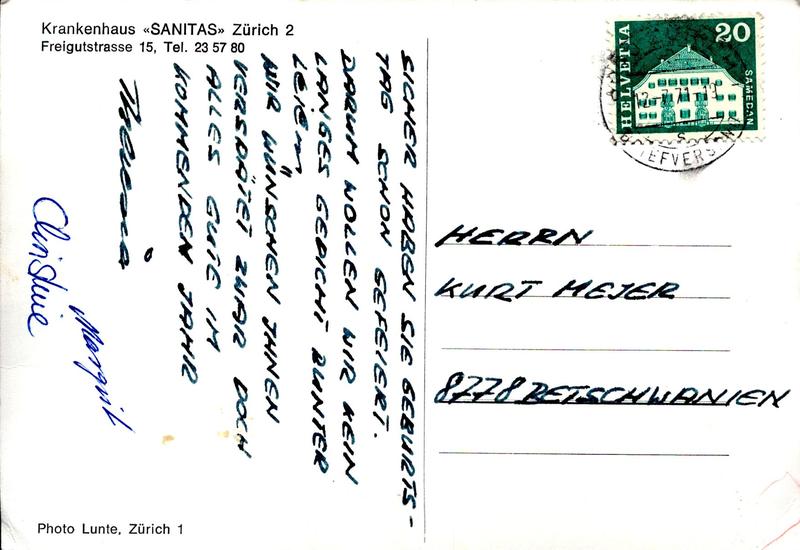 Krankenhaus «SANITAS» Zürich 2
Freigutstrasse 15, Tel. 23 57 80
SICHER HABEN SIE GEBURTS-
TAG SCHON GEFEIERT.
DARUM WOLLEN WIR KEIN
LANGES GEDICHT RUNTER
LEIERN
WIR WÜNSCHEN IHNEN
VERSPÄTET ZWAR DOCH
ALLES GUTE IM
KOMMENDEN JAHR
Christine
Margrit
Photo Lunte, Zürich 1
HELVETIA
20
SAMEDAN
12-7.71-19
BRIEFVERSAND
HERRN
KURT MEJER
8778 BETSCHWANIEN